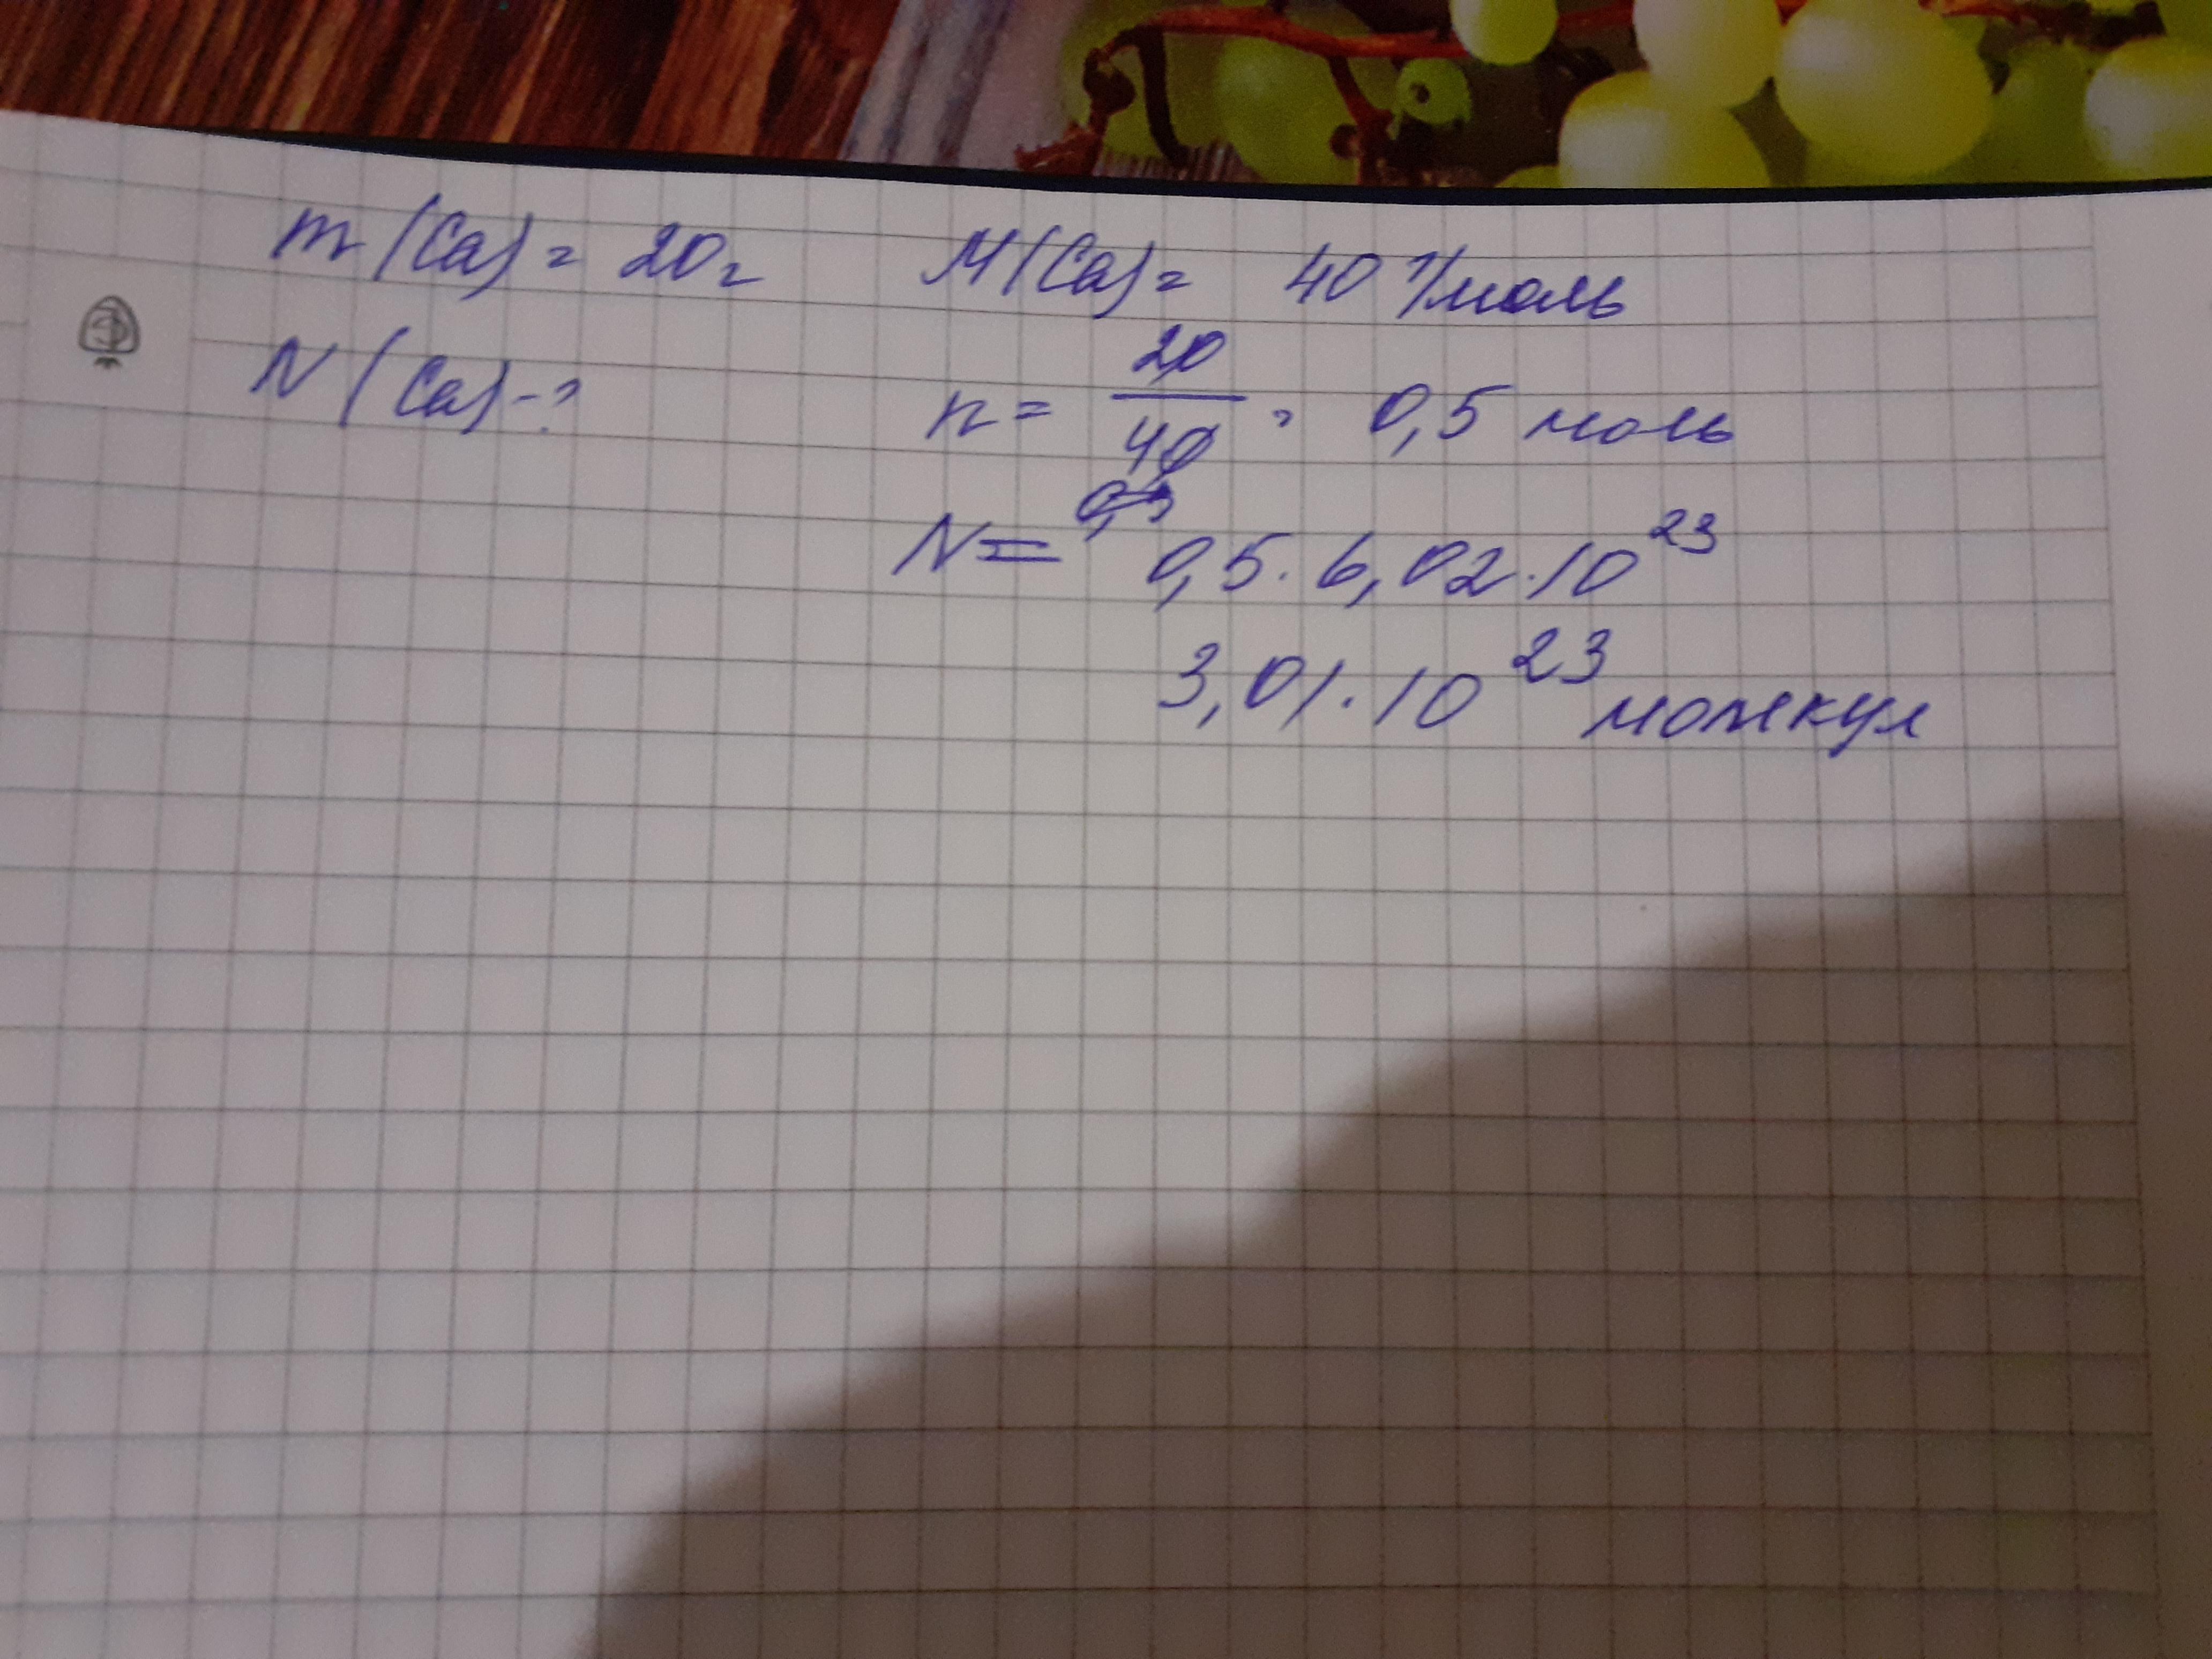 m (Ca) = 20 г
N (Ca) - ?
M (Ca) = 40 г/моль
n = 20/40 = 0,5 моль
N = 0,5 · 6,02 · 10²³
3,01 · 10²³ молекул